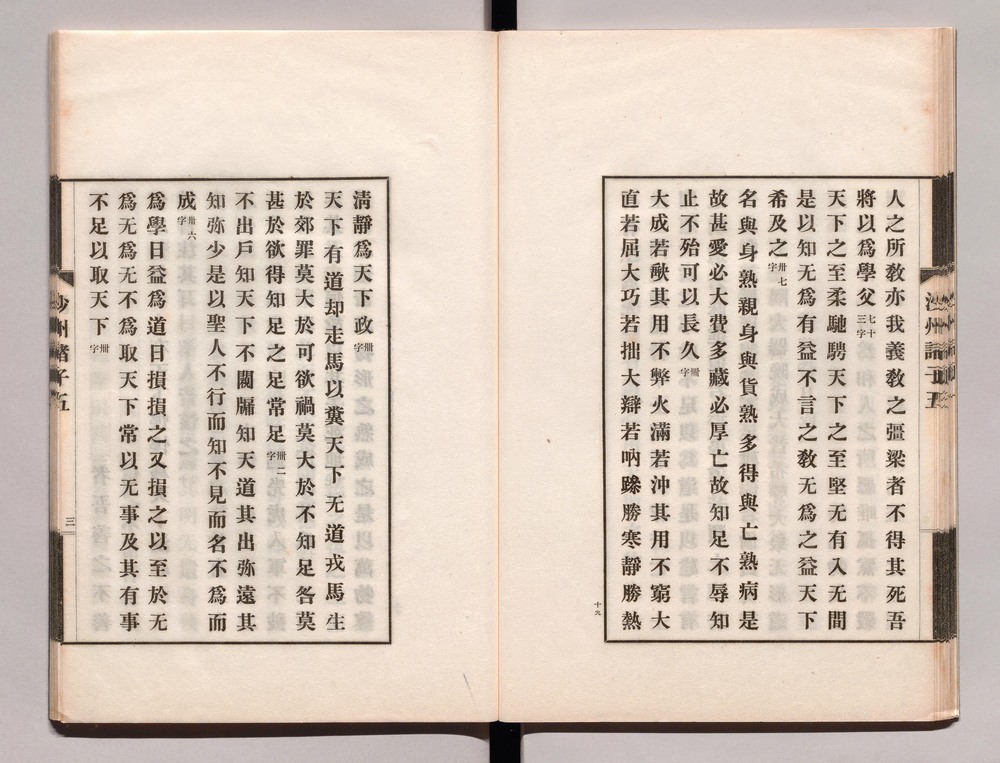 人之所教亦我義教之彊梁者不得其死吾
將以爲學父七十三字
天下之至柔馳騁天下之至堅无有入无間
是以知无爲有益不言之教无爲之益天下
希及之卅七字
名與身熟親身與貨熟多得與亡熟病是
故甚愛必大費多藏必厚亡故知足不辱知
止不殆可以長久卌字
大成若缺其用不弊火滿若沖其用不窮大
直若屈大巧若拙大辯若吶躁勝寒靜勝熱
十九
清靜爲天下政卌字
天下有道却走馬以糞天下无道戎馬生
於郊罪莫大於可欲禍莫大於不知足咎莫
甚於欲得知足之足常足卌二字
不出戶知天下不闚牖知天道其出弥遠其
知弥少是以聖人不行而知不見而名不爲而
成卅六字
爲學日益爲道日損損之又損之以至於无
爲无爲无不爲取天下常以无事及其有事
不足以取天下卌字
沙州諸子五
三